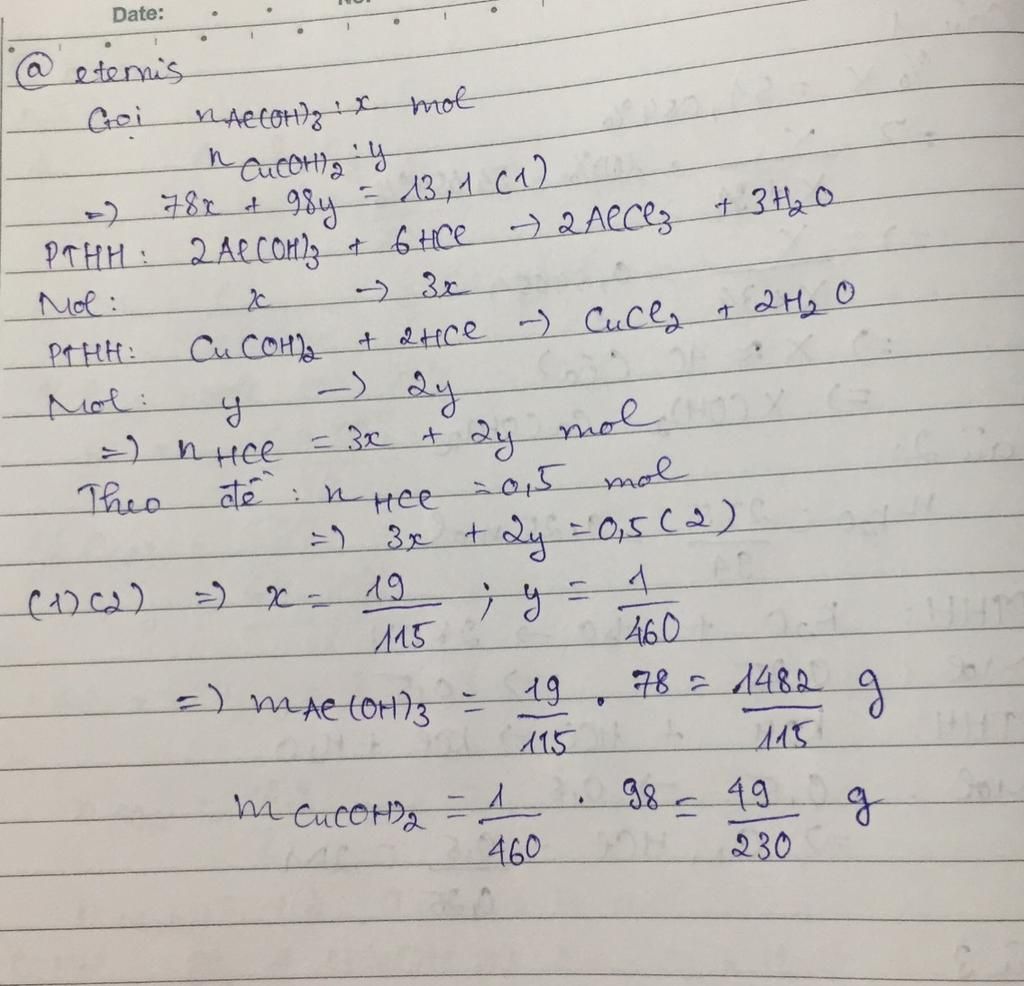 Date: No.
@ eternis
Gọi nAl(OH)3 : x mol
nCu(OH)2 : y
=) 78x + 98y = 13,1 (1)
PTHH: 2Al(OH)3 + 6HCl -> 2AlCl3 + 3H2O
Mol: x -> 3x
PTHH: Cu(OH)2 + 2HCl -> CuCl2 + 2H2O
Mol: y -> 2y
=) nHCl = 3x + 2y mol
Theo đề : nHCl = 0,5 mol
=) 3x + 2y = 0,5 (2)
(1)(2) =) x = 19/115 ; y = 1/460
=) mAl(OH)3 = 19/115 . 78 = 1482/115 g
mCu(OH)2 = 1/460 . 98 = 49/230 g